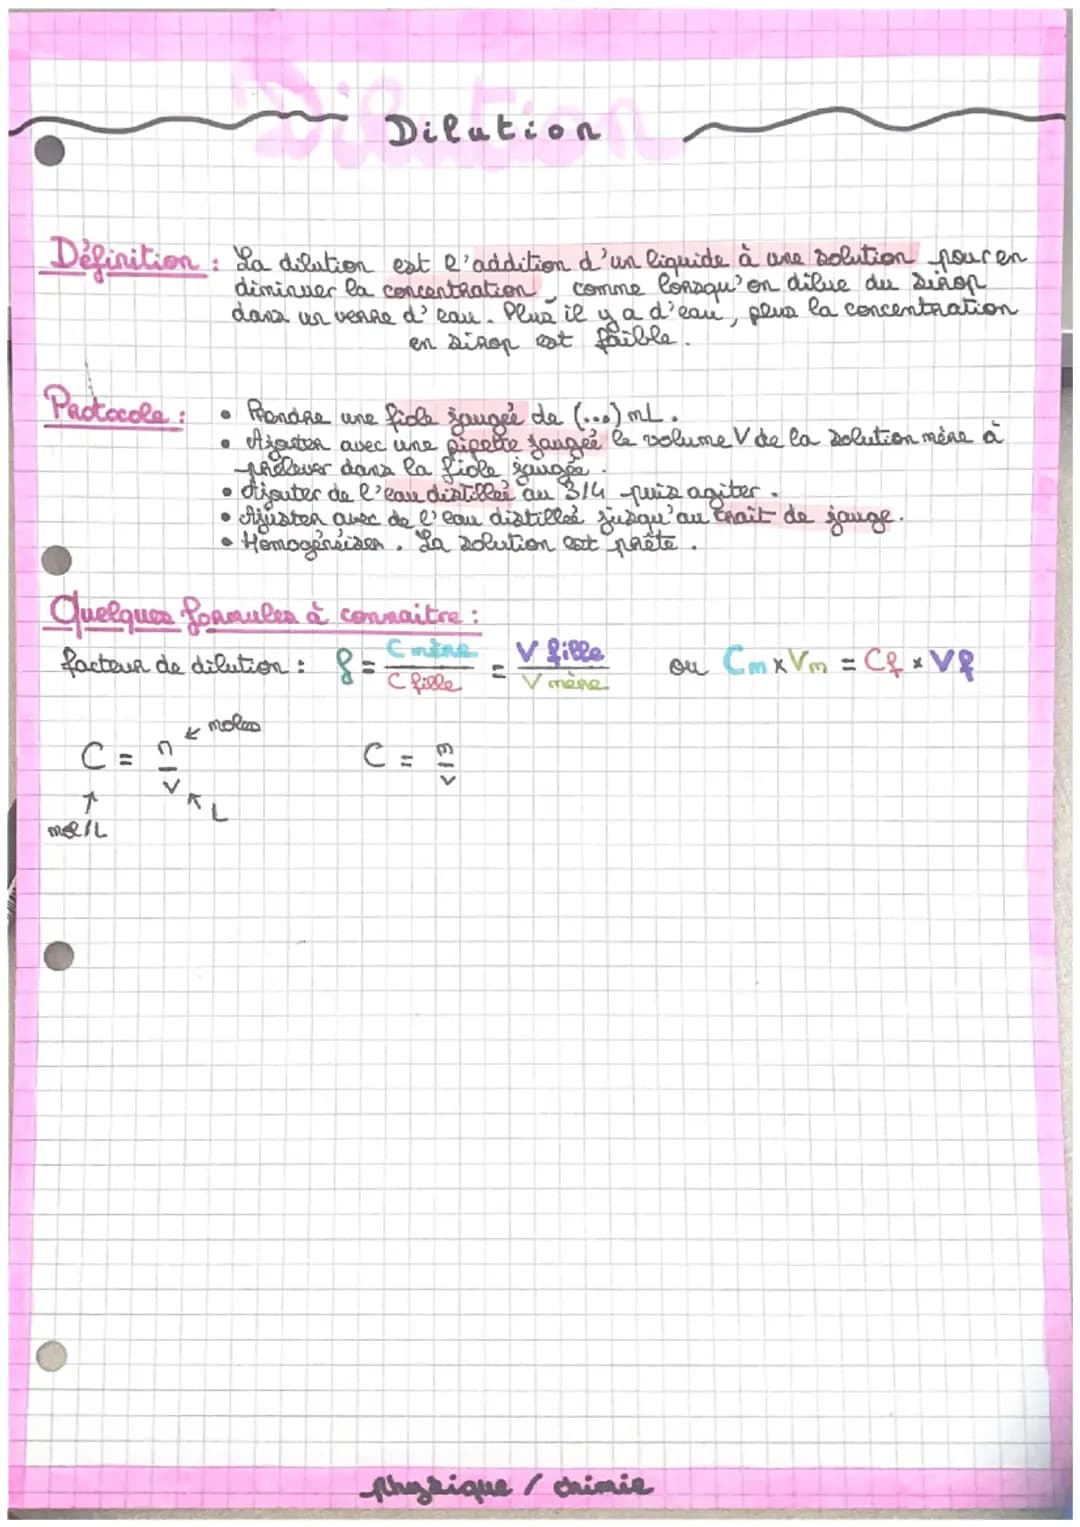 Dilution
Définition : La dilution est l'addition d'un liquide à une solution pour en
diminuer la concentration, comme lorsqu'on dilue du sirop
dans un verre d'eau. Plus il y a d'eau, plus la concentration
en sirop est faible.
Protocole : • Prendre une fiole jaugée de (...) mL.
• Ajouter avec une pipette jaugée le volume V de la solution mère à
prélever dans la fiole jaugée.
• Ajouter de l'eau distillée au 3/4 puis agiter.
• Ajuster avec de l'eau distillée jusqu'au trait de jauge.
• Homogénéiser. La solution est prête.
Quelques formules à connaitre :
facteur de dilution : f = C mère / C fille = V fille / V mère ou Cm x Vm = Cf x Vf
C = n / v ← moles
↑ ↖ L
mol/L
C = m / v
Physique / chimie